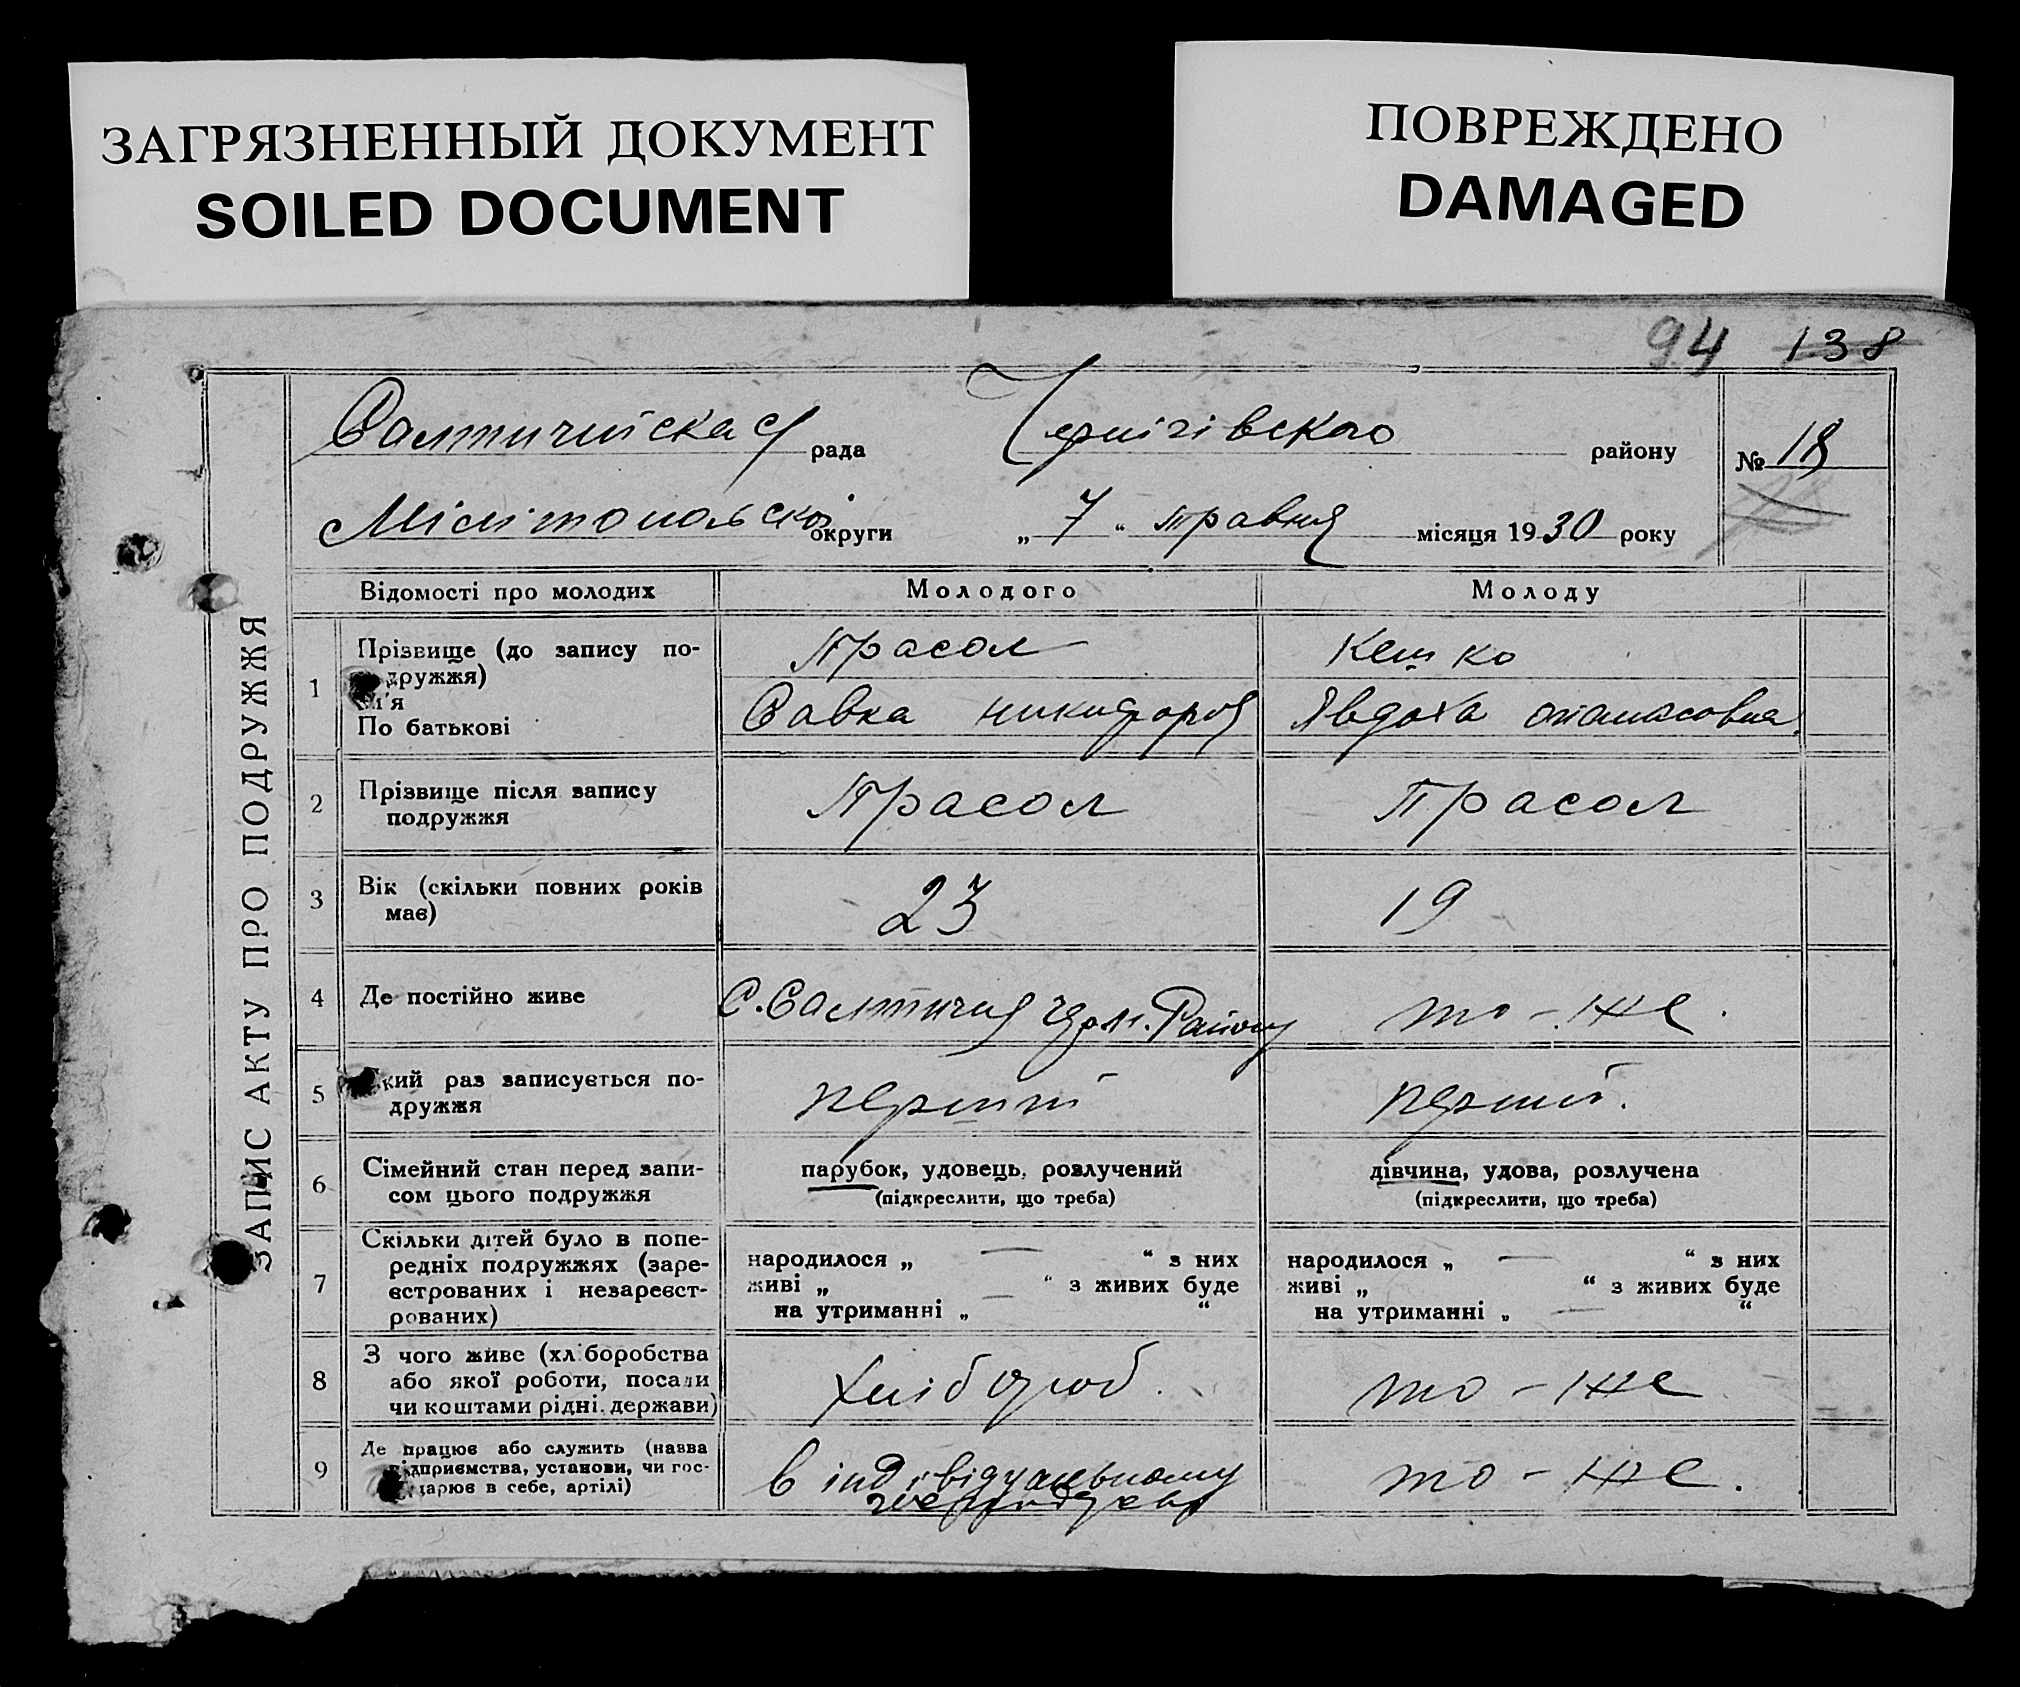 ЗАГРЯЗНЕННЫЙ ДОКУМЕНТ
SOILED DOCUMENT
ПОВРЕЖДЕНО
DAMAGED
94 138
ЗАПИС АКТУ ПРО ПОДРУЖЖЯ
Салтичийська с/рада Чернігівського району № 18
Мелітопольскої округи „ 7 “ травня місяця 1930 року
Відомості про молодих Молодого Молоду
1 Прізвище (до запису по- Прасол
дружжя)
м'я Савка Явдоха
По батькові
2 Прізвище після запису Прасол Прасол
подружжя
3 Вік (скільки повних років 23 19
має)
4 Де постійно живе С. Салтичия Черн. Району то-же.
5 кий раз записується по- перший перший.
дружжя
6 Сімейний стан перед запи- парубок, удовець, розлучений дівчина, удова, розлучена
сом цього подружжя (підкреслити, що треба) (підкреслити, що треба)
7 Скільки дітей було в попе-
редніх подружжях (заре- народилося „ — “ з них народилося „ — “ з них
єстрованих і незареєст- живі „ “ з живих буде живі „ “ з живих буде
рованих) на утриманні „ — “ на утриманні „ — “
8 З чого живе (хліборобства хлібороб. то-же
або якої роботи, посади
чи коштами рідні, держави)
9 Де працює або служить (назва в індівідуальному то-же.
підприємства, установи, чи гос-
дарює в себе, артілі)